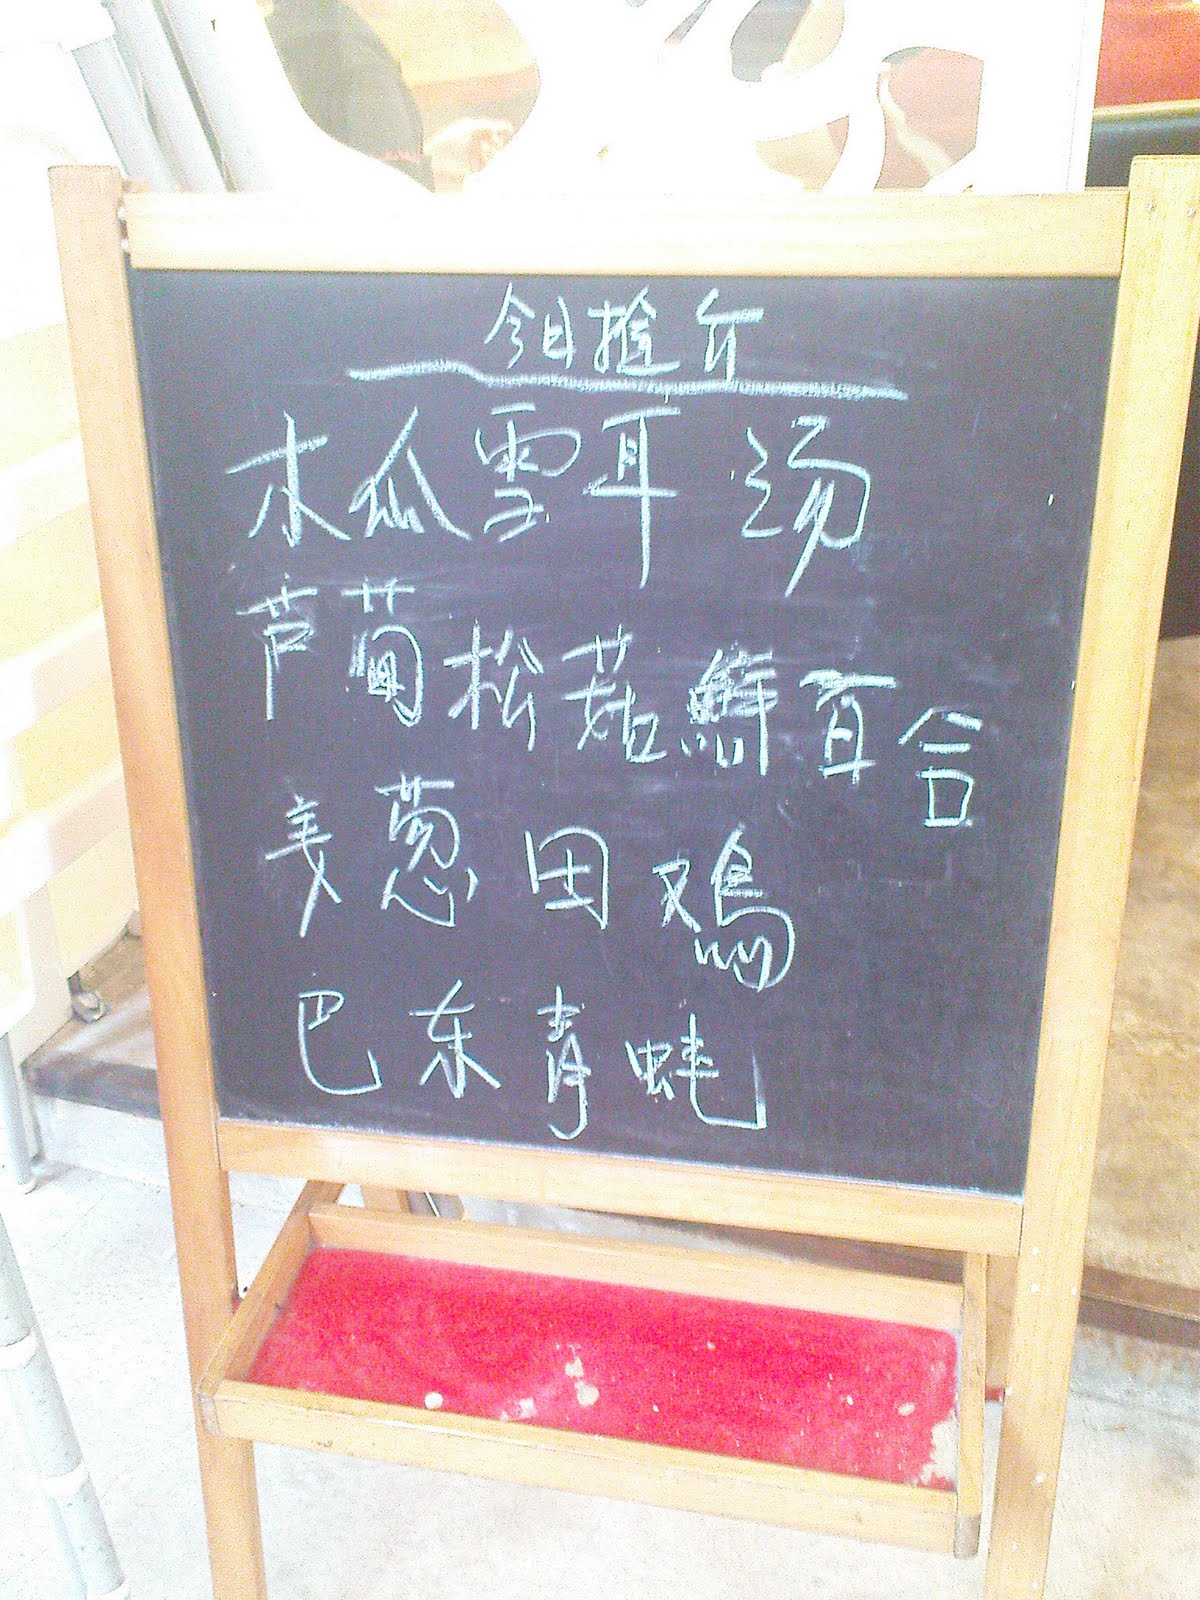 今日推介
木瓜雪耳汤
芦荀松菇鮮百合
姜葱田鸡
巴东青蚝